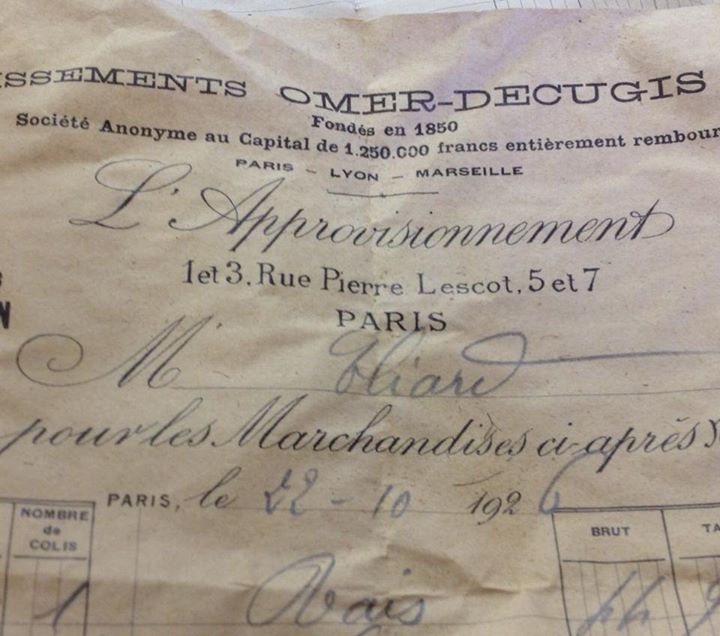 ISSEMENTS OMER-DECUGIS
Fondés en 1850
Société Anonyme au Capital de 1.250.000 francs entièrement rembour
PARIS - LYON - MARSEILLE
L'Approvisionnement
1 et 3, Rue Pierre Lescot, 5 et 7
PARIS
N
M
pour les Marchandises ci-après
PARIS, le 22-10 1926
NOMBRE de COLIS
BRUT
TA
1